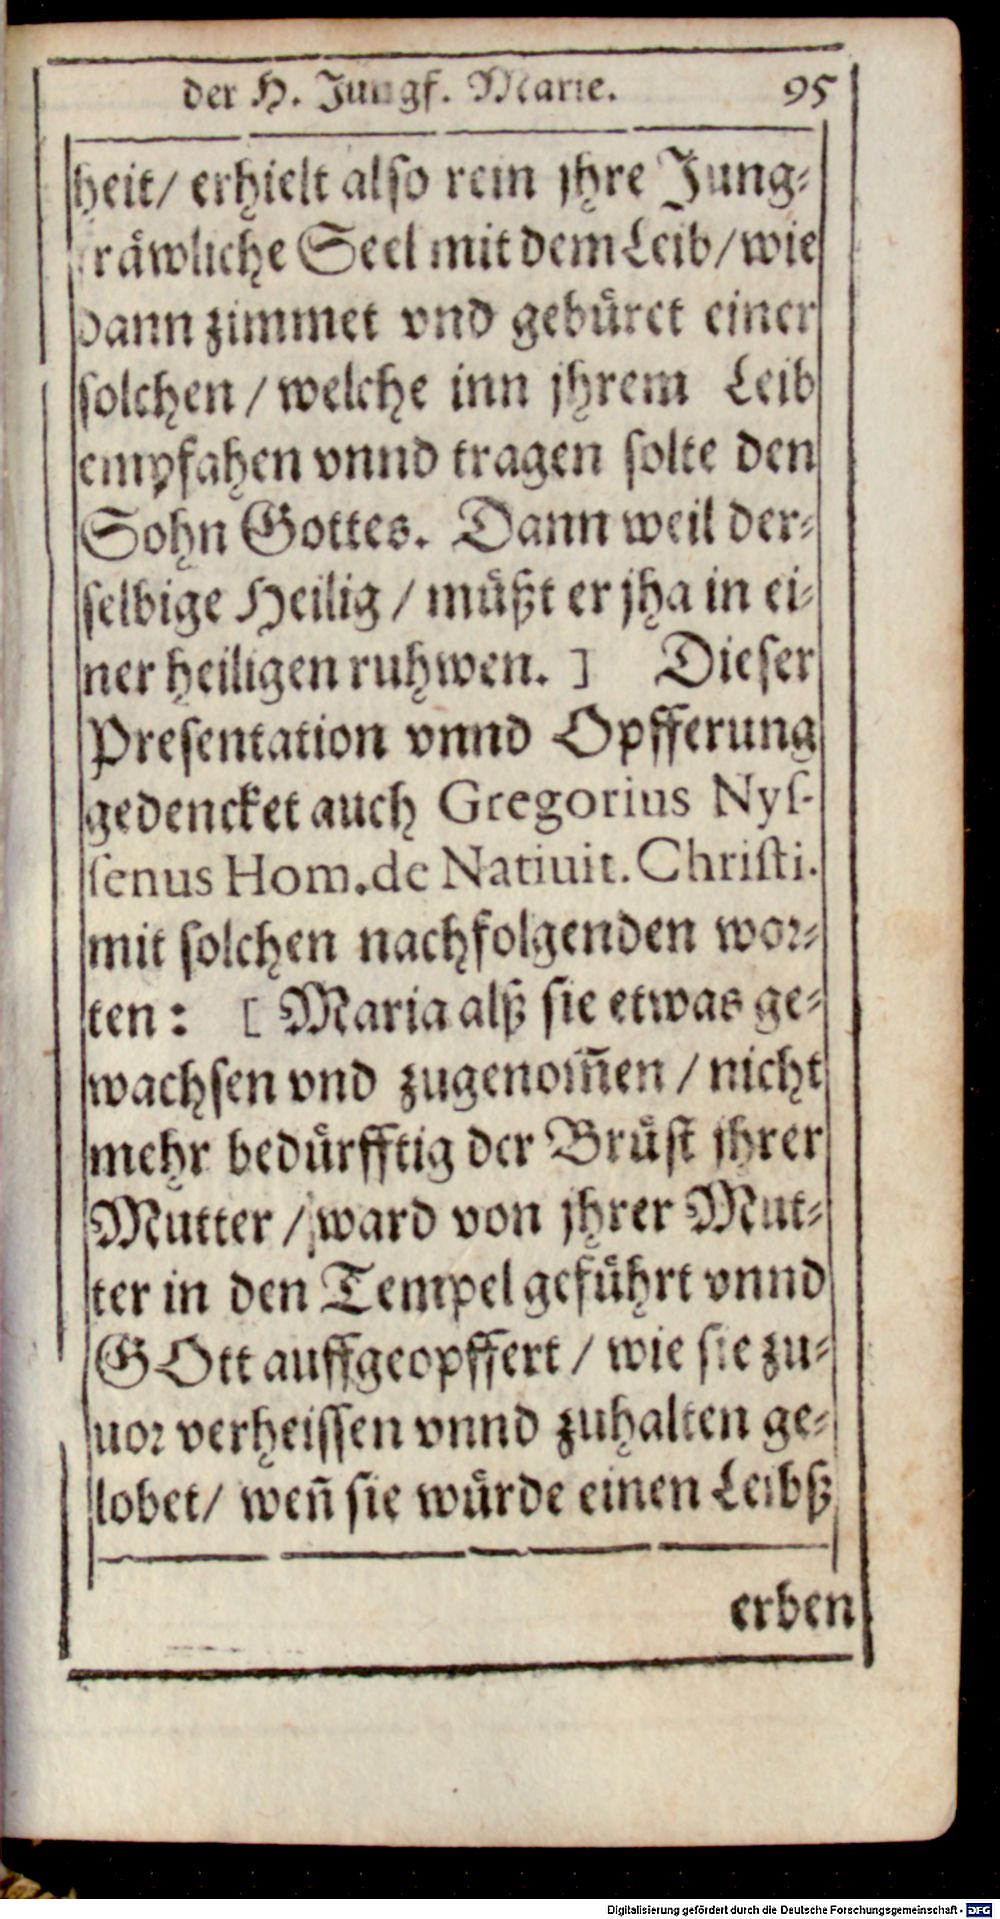 der H. Jungf. Marie. 95
heit/ erhielt also rein jhre Jung-
fräwliche Seel mit dem Leib/ wie
dann zimmet vnd gebüret einer
solchen / welche inn jhrem Leib
empfahen vnnd tragen solte den
Sohn Gottes. Dann weil der-
selbige Heilig / müßt er jha in ei-
ner heiligen ruhwen. ] Dieser
Presentation vnnd Opfferung
gedencket auch Gregorius Nyſ-
ſenus Hom. de Natiuit. Chriſti.
mit solchen nachfolgenden wor-
ten: [ Maria alß sie etwas ge-
wachsen vnd zugenom̃en / nicht
mehr bedürfftig der Brüst jhrer
Mutter / ward von jhrer Mut-
ter in den Tempel geführt vnnd
GOtt auffgeopffert / wie sie zu-
uor verheissen vnnd zuhalten ge-
lobet/ weñ sie würde einen Leibß
erben
Digitalisierung gefördert durch die Deutsche Forschungsgemeinschaft - DFG